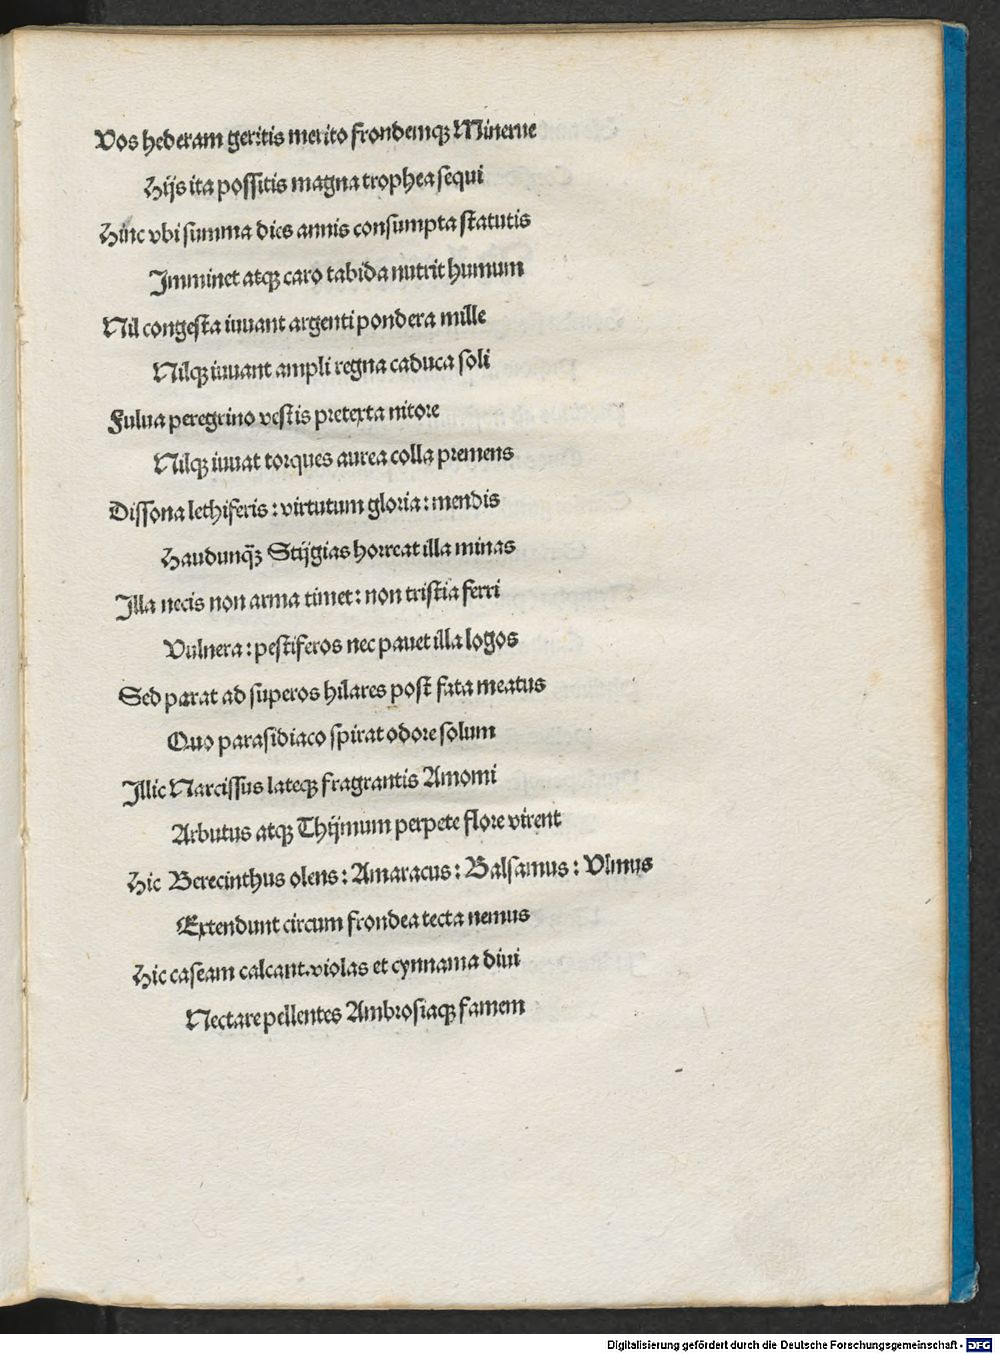 Vos hederam geritis merito frondemqꝫ Minerue
Hijs ita possitis magna trophea sequi
Hinc vbi summa dies annis consumpta statutis
Imminet atqꝫ caro tabida nutrit humum
Nil congesta iuuant argenti pondera mille
Nilqꝫ iuuant ampli regna caduca soli
Fulua peregrino vestis pretexta nitore
Nilqꝫ iuuat torques aurea colla premens
Dissona lethiferis : virtutum gloria : mendis
Haudunqꝫ̄ Stijgias horreat illa minas
Illa necis non arma timet : non tristia ferri
Vulnera : pestiferos nec pauet illa logos
Sed parat ad superos hilares post fata meatus
Quo parasidiaco spirat odore solum
Illic Narcissus lateqꝫ fragrantis Amomi
Arbutus atqꝫ Thijmum perpete flore virent
Hic Berecinthus olens : Amaracus : Balsamus : Vlmus
Extendunt circum frondea tecta nemus
Hic caseam calcant.violas et cynnama diui
Nectare pellentes Ambrosiaqꝫ famem
Digitalisierung gefördert durch die Deutsche Forschungsgemeinschaft - DFG